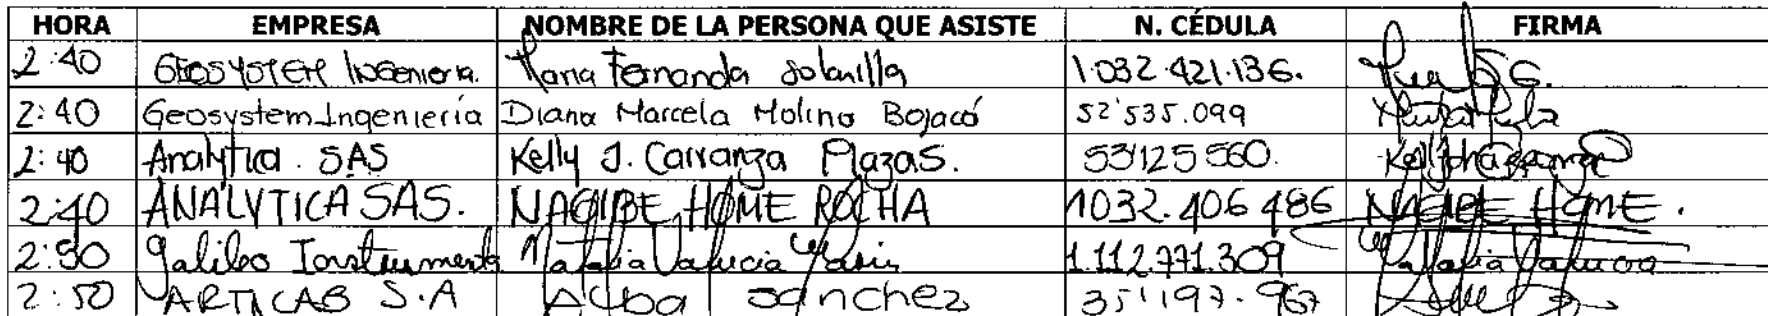 HORA EMPRESA NOMBRE DE LA PERSONA QUE ASISTE N. CÉDULA FIRMA
2:40 GEOSYSTEM INGENIERIA. Maria Fernanda Solanilla 1.032.421.136.
2:40 Geosystem Ingeniería Diana Marcela Molina Bojacá 52'535.099
2:40 Analytica. SAS Kelly J. Carranza Plazas. 53'125 560.
2:40 ANALYTICA SAS. NAGIBE HOME ROCHA 1032.406 486 NAGIBE HOME.
2:50 Galileo Instruments Natalia Valencia 1.112.771.309 Natalia Valencia
2:50 ARTICAB S.A Alba Sanchez 35'197.967